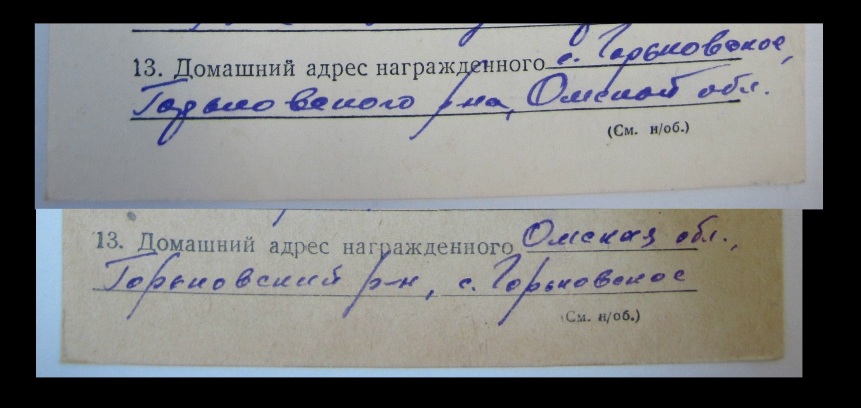 13. Домашний адрес награжденного с. Горьковское,
Горьковского р-на, Омской обл.
(См. н/об.)
13. Домашний адрес награжденного Омская обл.,
Горьковский р-н, с. Горьковское
(См. н/об.)